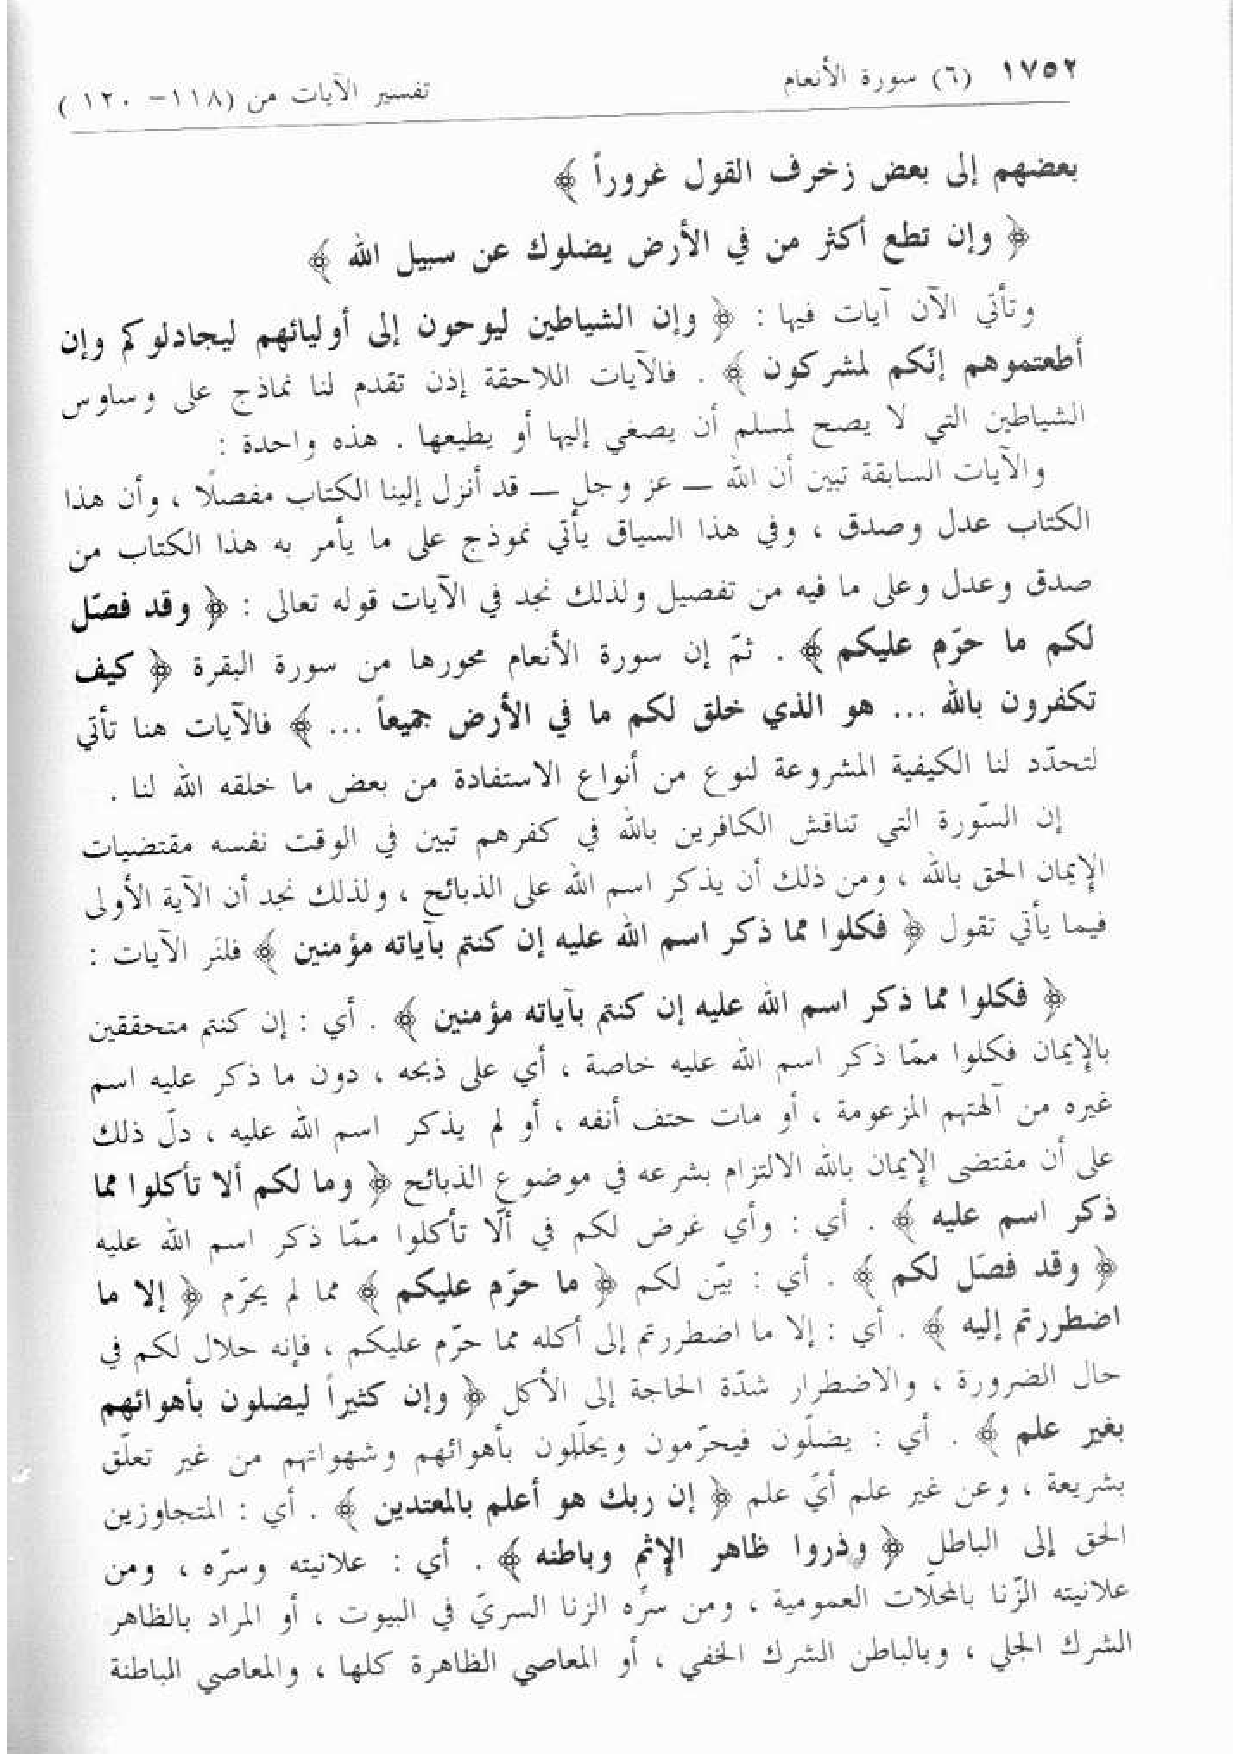 ١٧٥٢ (٦) سورة الأنعام تفسير الآيات من (١١٨ – ١٢٠)
بعضهم إلى بعض زخرف القول غروراً ﴾
﴿ وإن تطع أكثر من في الأرض يضلوك عن سبيل الله ﴾
وتأتي الآن آيات فيها : ﴿ وإن الشياطين ليوحون إلى أوليائهم ليجادلوكم وإن
أطعتموهم إنّكم لمشركون ﴾ . فالآيات اللاحقة إذن تقدم لنا نماذج على وساوس
الشياطين التي لا يصح لمسلم أن يصغي إليها أو يطيعها . هذه واحدة :
والآيات السابقة تبين أن الله – عز وجل – قد أنزل إلينا الكتاب مفصلًا ، وأن هذا
الكتاب عدل وصدق ، وفي هذا السياق يأتي نموذج على ما يأمر به هذا الكتاب من
صدق وعدل وعلى ما فيه من تفصيل ولذلك نجد في الآيات قوله تعالى : ﴿ وقد فصّل
لكم ما حرّم عليكم ﴾ . ثمّ إن سورة الأنعام محورها من سورة البقرة ﴿ كيف
تكفرون بالله ... هو الذي خلق لكم ما في الأرض جميعاً ... ﴾ فالآيات هنا تأتي
لتحدّد لنا الكيفية المشروعة لنوع من أنواع الاستفادة من بعض ما خلقه الله لنا .
إن السّورة التي تناقش الكافرين بالله في كفرهم تبين في الوقت نفسه مقتضيات
الإيمان الحق بالله ، ومن ذلك أن يذكر اسم الله على الذبائح ، ولذلك نجد أن الآية الأولى
فيما يأتي تقول ﴿ فكلوا مما ذكر اسم الله عليه إن كنتم بآياته مؤمنين ﴾ فلنر الآيات :
﴿ فكلوا مما ذكر اسم الله عليه إن كنتم بآياته مؤمنين ﴾ . أي : إن كنتم متحققين
بالإيمان فكلوا ممّا ذكر اسم الله عليه خاصة ، أي على ذبحه ، دون ما ذكر عليه اسم
غيره من آلهتهم المزعومة ، أو مات حتف أنفه ، أو لم يذكر اسم الله عليه ، دلّ ذلك
على أن مقتضى الإيمان بالله الالتزام بشرعه في موضوع الذبائح ﴿ وما لكم ألا تأكلوا مما
ذكر اسم عليه ﴾ . أي : وأي غرض لكم في ألّا تأكلوا ممّا ذكر اسم الله عليه
﴿ وقد فصّل لكم ﴾ . أي : بيّن لكم ﴿ ما حرّم عليكم ﴾ مما لم يحرّم ﴿ إلا ما
اضطررتم إليه ﴾ . أي : إلا ما اضطررتم إلى أكله مما حرّم عليكم ، فإنه حلال لكم في
حال الضرورة ، والاضطرار شدّة الحاجة إلى الأكل ﴿ وإن كثيراً ليضلون بأهوائهم
بغير علم ﴾ . أي : يضلّون فيحرّمون ويحلّلون بأهوائهم وشهواتهم من غير تعلّق
بشريعة ، وعن غير علم أيّ علم ﴿ إن ربك هو أعلم بالمعتدين ﴾ . أي : المتجاوزين
الحق إلى الباطل ﴿ وذروا ظاهر الإثم وباطنه ﴾ . أي : علانيته وسرّه ، ومن
علانيته الزّنا بالمحلّات العمومية ، ومن سرّه الزنا السريّ في البيوت ، أو المراد بالظاهر
الشرك الجلي ، وبالباطن الشرك الخفي ، أو المعاصي الظاهرة كلها ، والمعاصي الباطنة